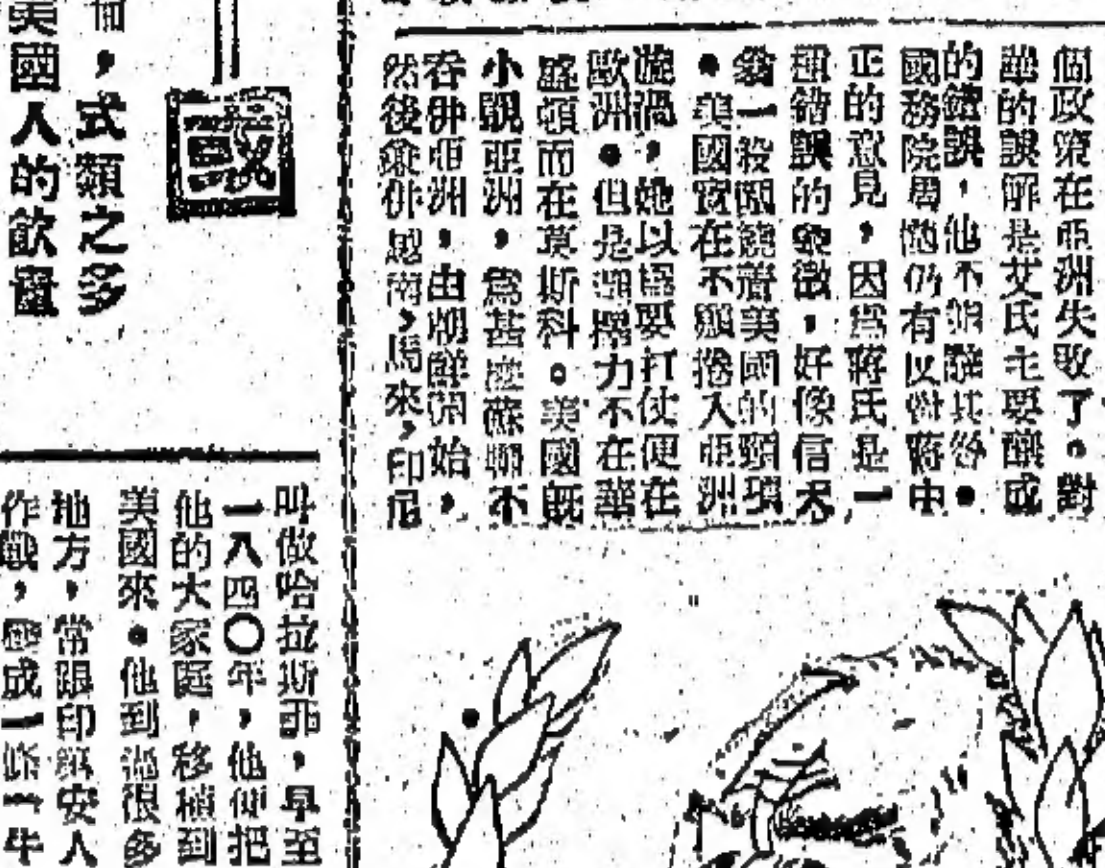 個政策在亞洲失敗了。對
華的誤解是艾氏主要釀成
的錯誤，他不能辭其咎。
國務院裏他仍有反對蔣中
正的意見，因爲蔣氏是一
種錯誤的象徵，好像信天
翁一般圍繞着美國的頸項
。美國實在不願捲入亞洲
漩渦，她以爲要打仗便在
歐洲。但是力不在華
盛頓而在莫斯科。美國既
小覷亞洲，爲甚麽蘇聯不
吞併亞洲，由朝鮮開始，
然後兼併越南，馬來，印尼
國
，式類之多
美國人的飲
叫做哈拉斯，早至
一八四〇年，他便把
他的大家庭，移殖到
美國來。他到過很多
地方，常跟印第安人
作戰，成一條